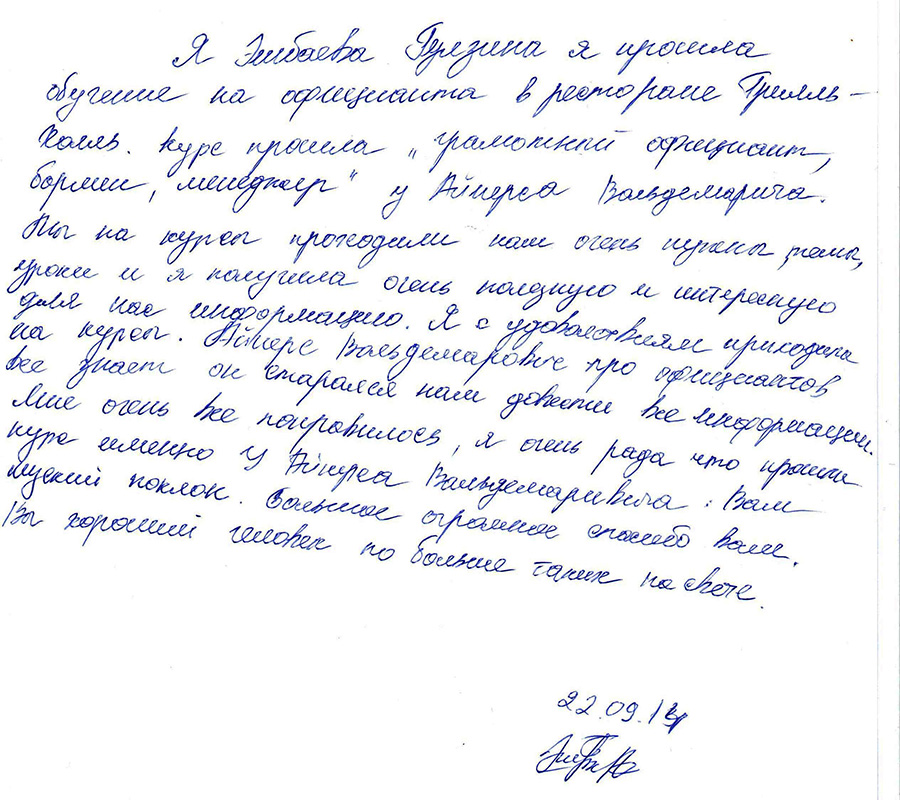 Я Эшбаева Гулзина я прошла
обучение на официанта в ресторане Грилль-
Холль. Курс прошла „грамотный официант,
бармен, менеджер" у Айнерса Вальдемарича.
Мы на курсы проходили нам очень нужны
уроки и я получила очень полезную и интересную
для нас информацию. Я с удовольствиям приходила
на курсы. Айнерс Вальдемарович про официантов
все знает он старался нам довести все информации.
Мне очень все понравилось, я очень рада что прошла
курс именно у Айнерса Вальдемаривича. Вам
низкий поклон. Большое огромное спасибо Вам.
Вы хороший человек по больше таких на свете.
22.09.14